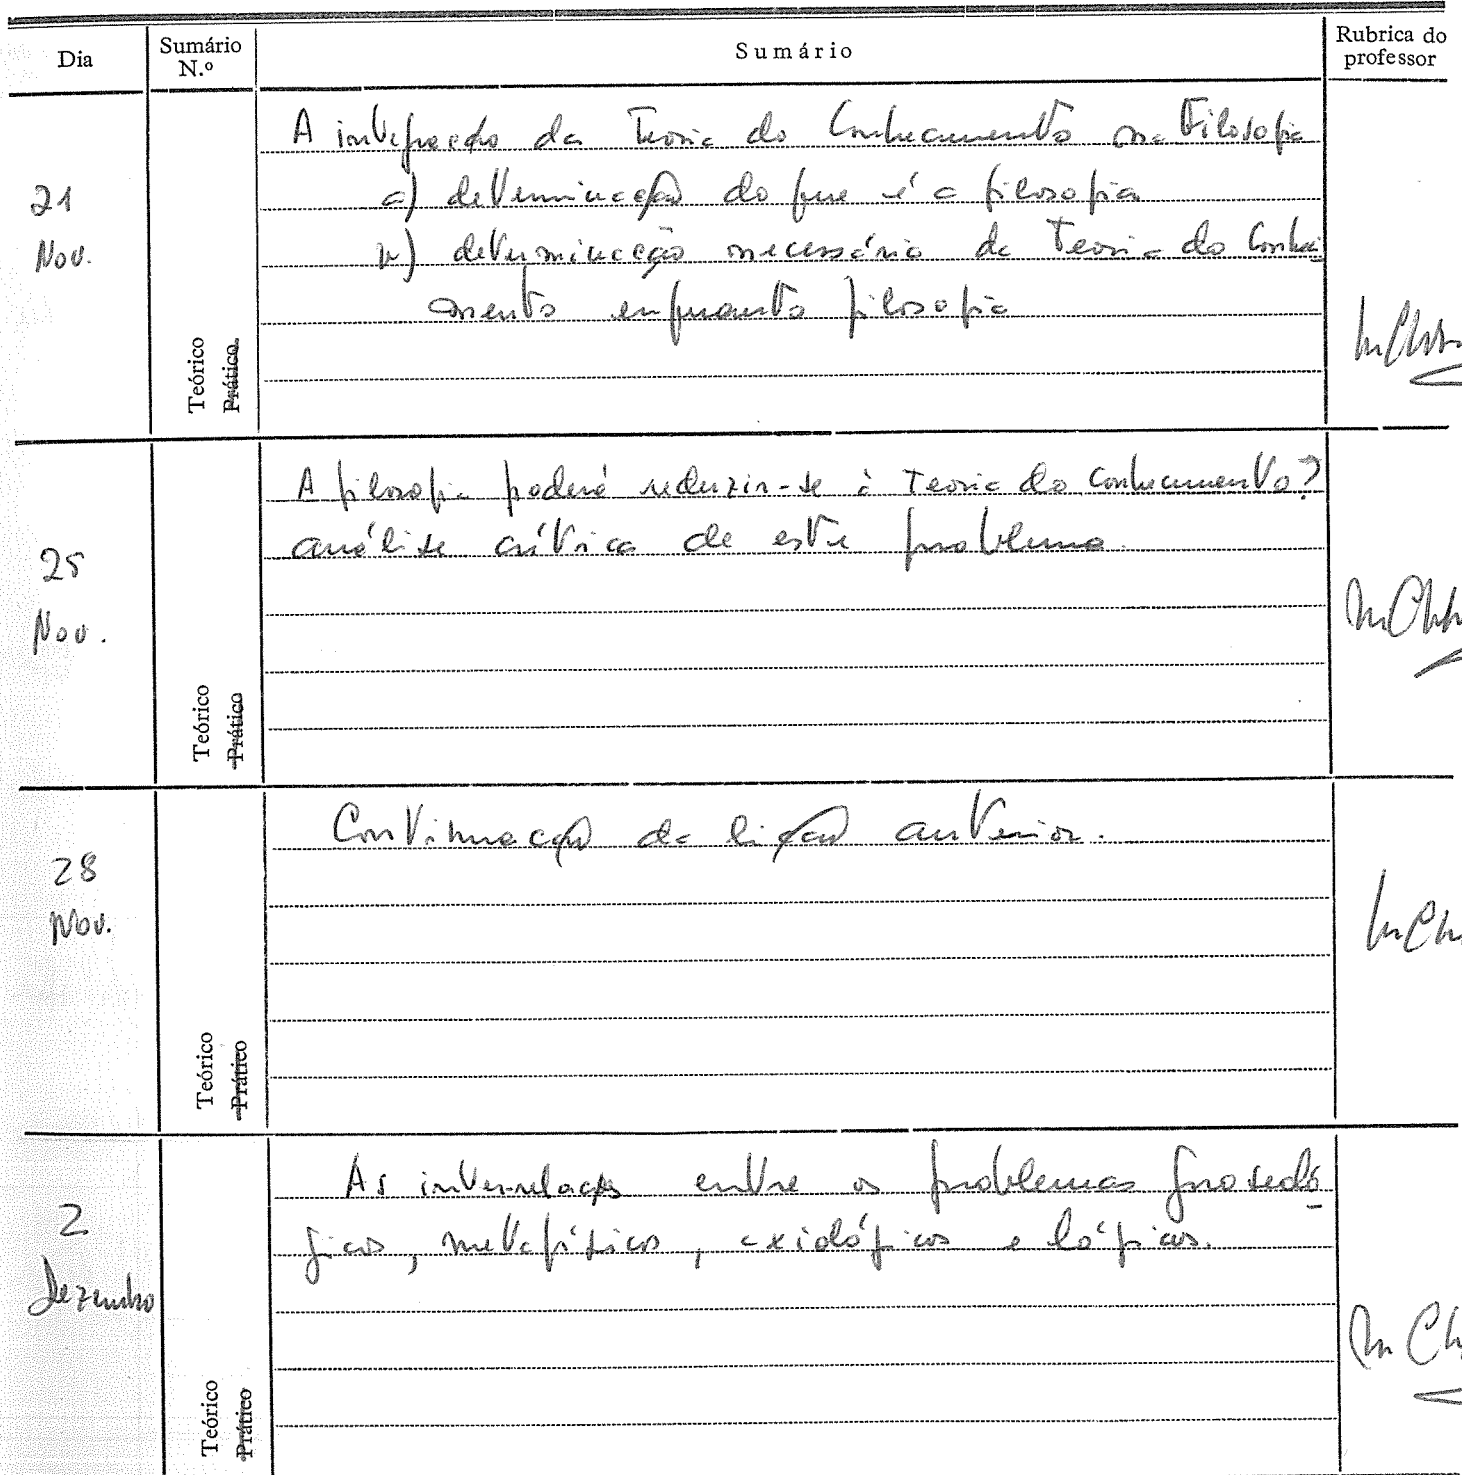 Dia
Sumário
N.º
Sumário
Rubrica do
professor
21
Nov.
Teórico
Prático
A integração da Teoria do Conhecimento na Filosofia
a) determinação do que é a filosofia
b) determinação necessária da Teoria do Conheci
mento enquanto filosofia
25
Nov.
Teórico
Prático
A filosofia poderá reduzir-se à Teoria do Conhecimento?
análise crítica de este problema.
28
Nov.
Teórico
Prático
Continuação da lição anterior.
2
Dezembro
Teórico
Prático
As inter-relações entre os problemas gnoseoló
gicos, metafísicos, axiológicos e lógicos.